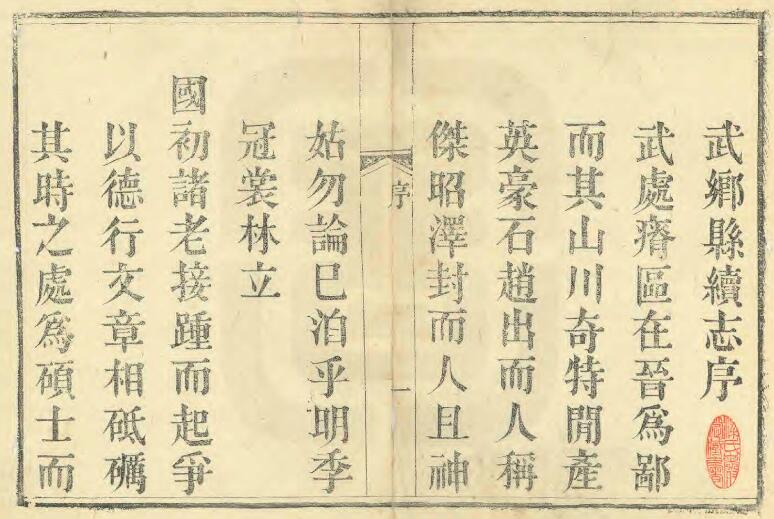 武鄉縣續志序
武處瘠區在晉爲鄙
而其山川奇特閒產
英豪石趙出而人稱
傑昭澤封而人且神
序
一
姑勿論已洎乎明季
冠裳林立
國初諸老接踵而起爭
以德行文章相砥礪
其時之處爲碩士而